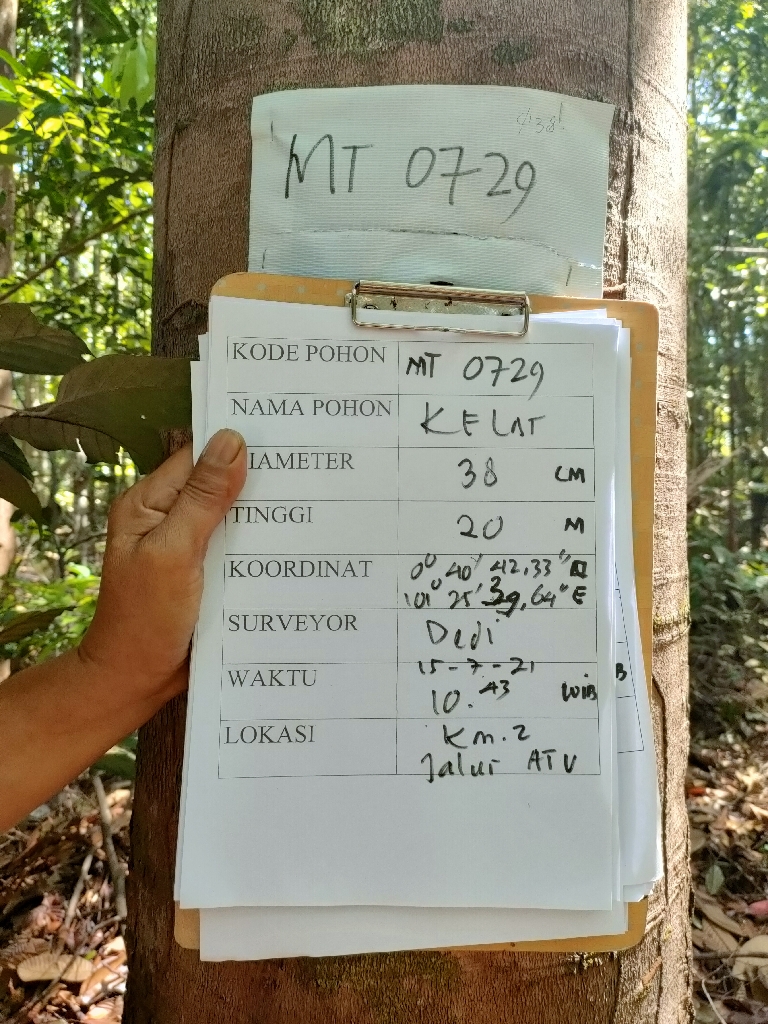 MT 0729
KODE POHON MT 0729
NAMA POHON KELAT
IAMETER 38 CM
TINGGI 20 M
KOORDINAT 0° 40' 42,33"
101° 25' 39,64" E
SURVEYOR Dedi
WAKTU 15-7-21
10.43 WIB
LOKASI Km.2
Jalur ATV
B